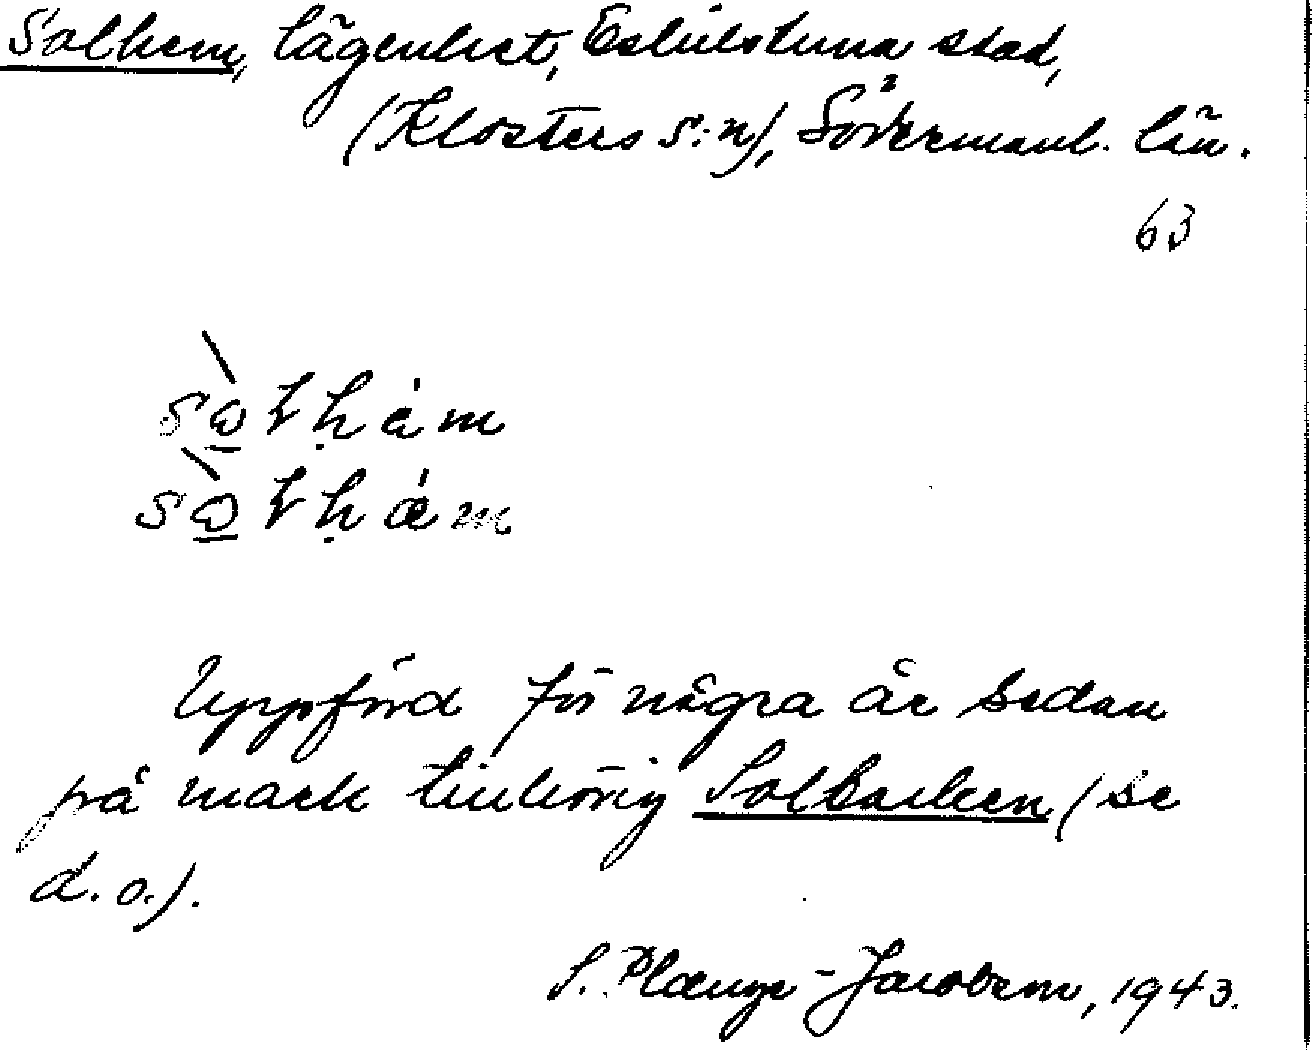 Solhem, lägenhet, Eskilstuna stad,
(Klosters s:n), Södermanl. län.
63
Uppförd för några år sedan
på mark tillhörig Solbacken (se
d. o.).
S. Plænge-Jacobson, 1943.